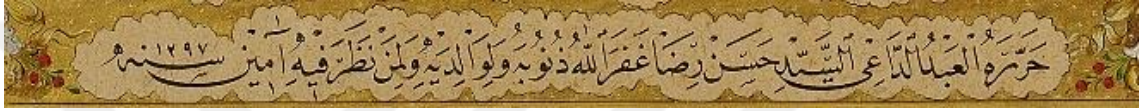 حَرَّرَهُ الْعَبْدُ الدَّاعِى السَّيِّدْ حَسَنْ رِضَا غَفَرَ اللّٰهُ ذُنُوبَهُ وَلِوَالِدَيْهِ وَلِمَنْ نَظَرَ فِيهِ آمِينْ سنه ١٢٩٧